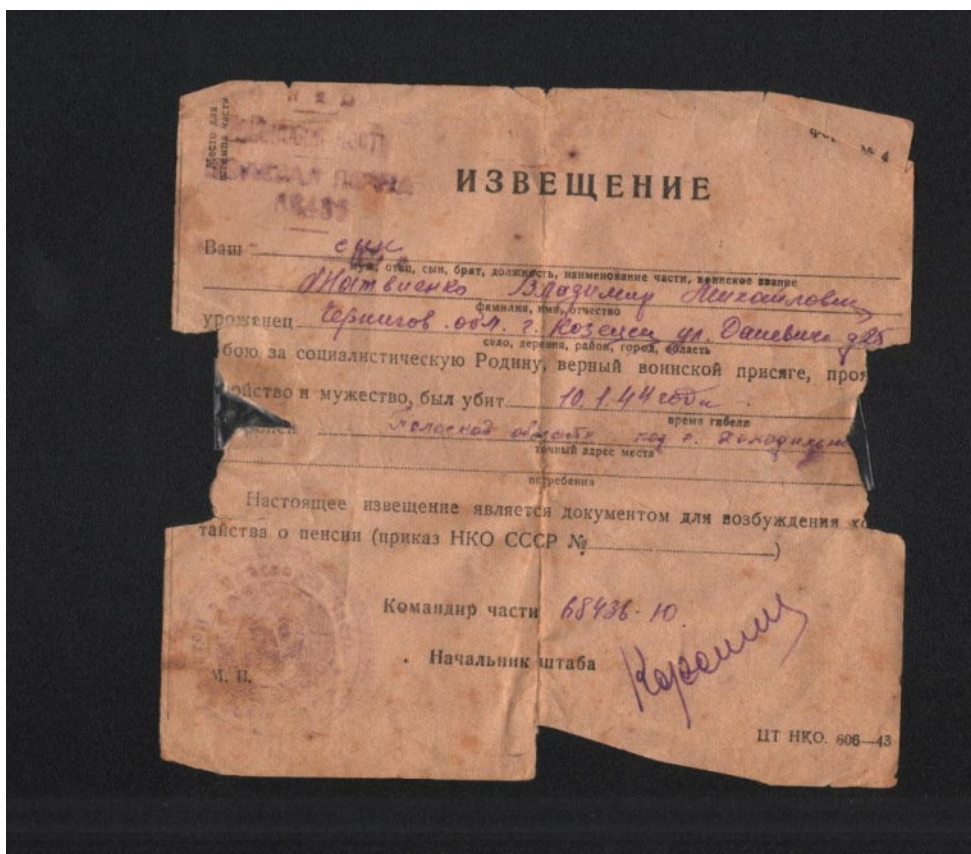 Место для
штампа части
ИЗВЕЩЕНИЕ
Ваш сын
муж, отец, сын, брат, должность, наименование части, воинское звание
Матвиенко Владимир Михайлович
фамилия, имя, отчество
уроженец Чернигов. обл. г. Козелец ул. Даневича д 25
село, деревня, район, город, область
бою за социалистическую Родину, верный воинской присяге, проя
ойство и мужество, был убит 10.1.44 года
время гибели
области под
точный адрес места
погребения
Настоящее извещение является документом для возбуждения хо
тайства о пенсии (приказ НКО СССР № )
Командир части 68436-Ю.
Начальник штаба
М. П.
ЦТ НКО. 606—43